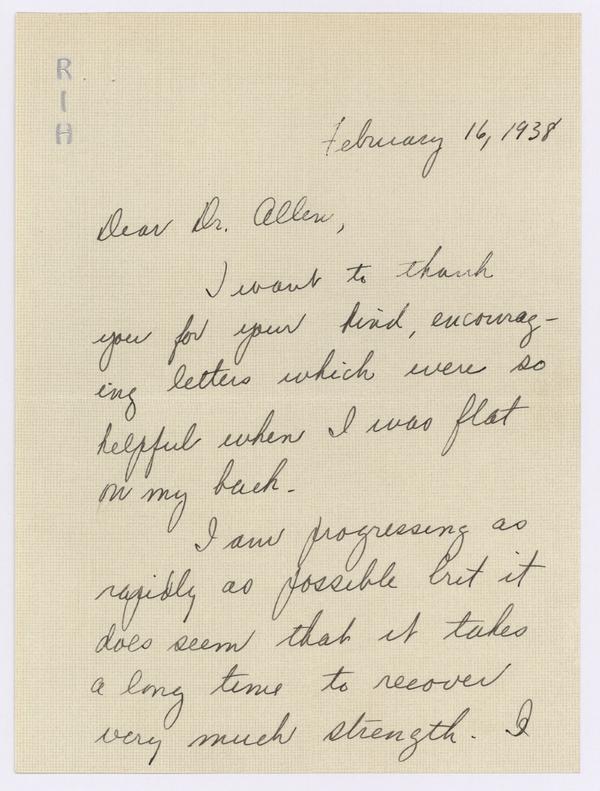 R
I
H
February 16, 1938
Dear Dr. Allen,
I want to thank
you for your kind, encourag-
ing letters which were so
helpful when I was flat
on my back.
I am progressing as
rapidly as possible but it
does seem that it takes
a long time to recover
very much strength. I